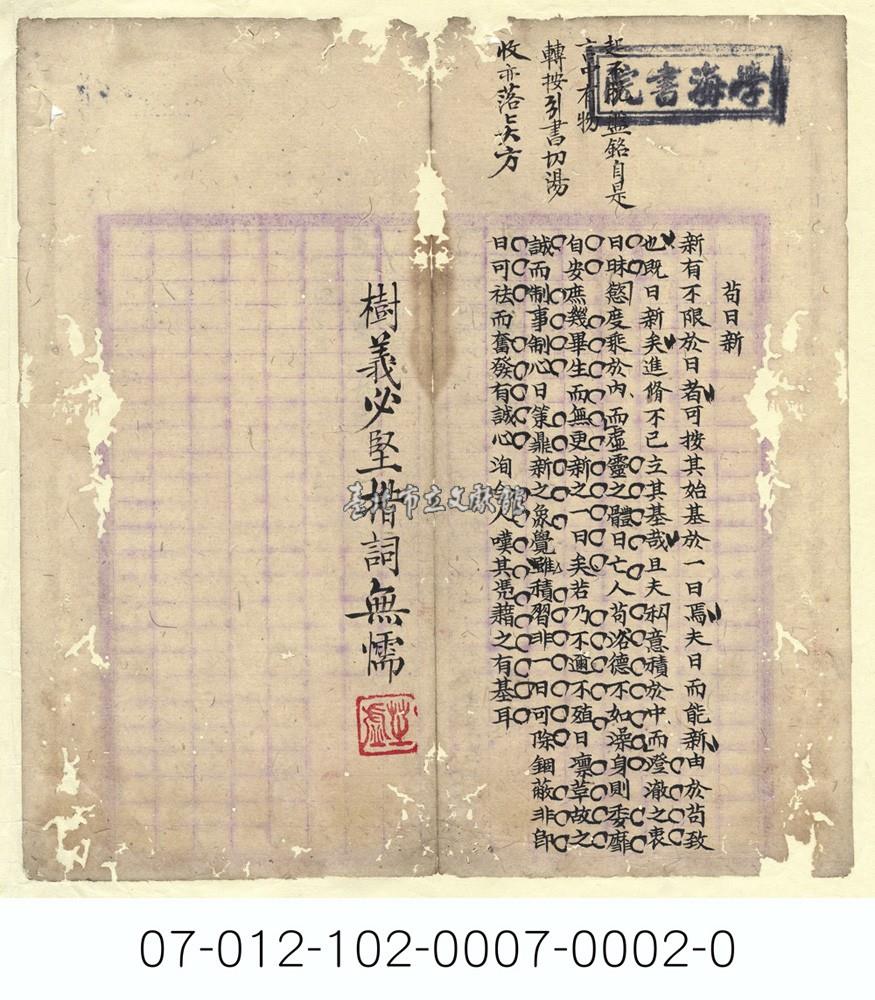 學海書院
起不脫盤銘自是
言中有物
轉按引書切湯
收亦落落大方
苟日新
新有不限於日者可按其始基於一日焉夫日而能新由於苟致
也既日新矣進脩不已立其基哉且夫私意積於中而澄澈之衷
日昧慾度乘於內而虛靈之體日亡人苟浴德不如澡身則委靡
自安庶幾畢生而無更新之一日矣若乃不邇不殖日凜革故之
誠而制事制心日策鼎新之象覺雖積習非一日可除錮蔽非即
日可袪而奮發有誠心洵令人嘆其憑藉之有基耳
樹義必堅措詞無懦
臺北市立文獻館
07-012-102-0007-0002-0